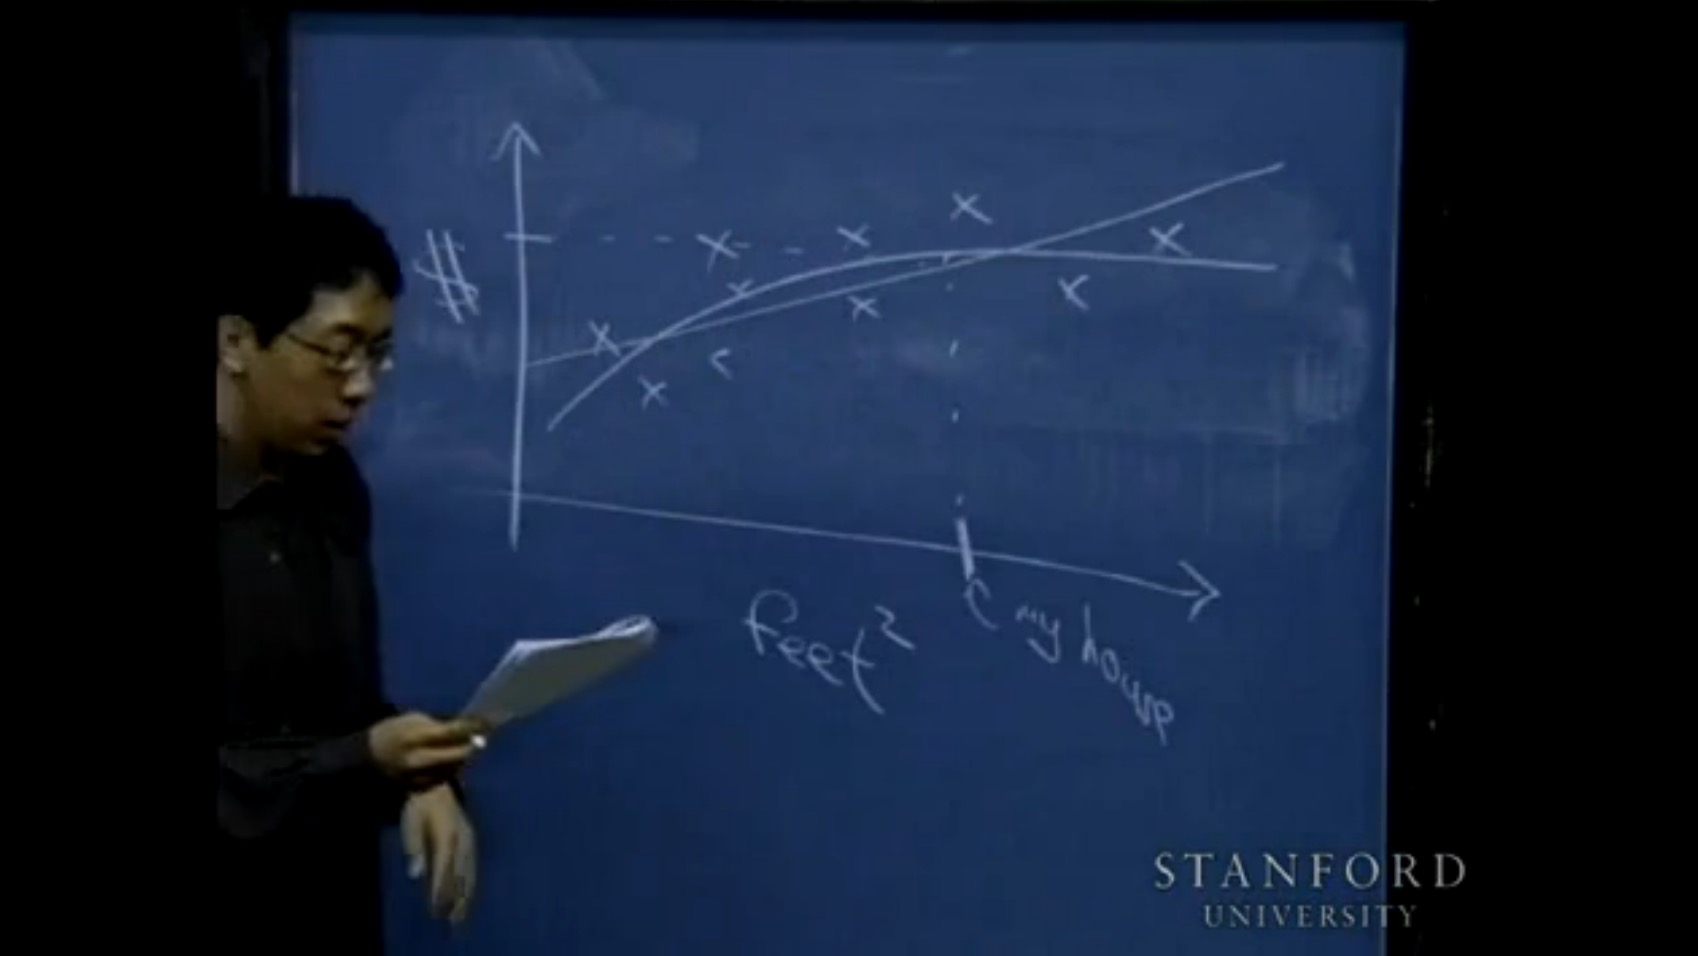 $
feet²
my house
STANFORD
UNIVERSITY